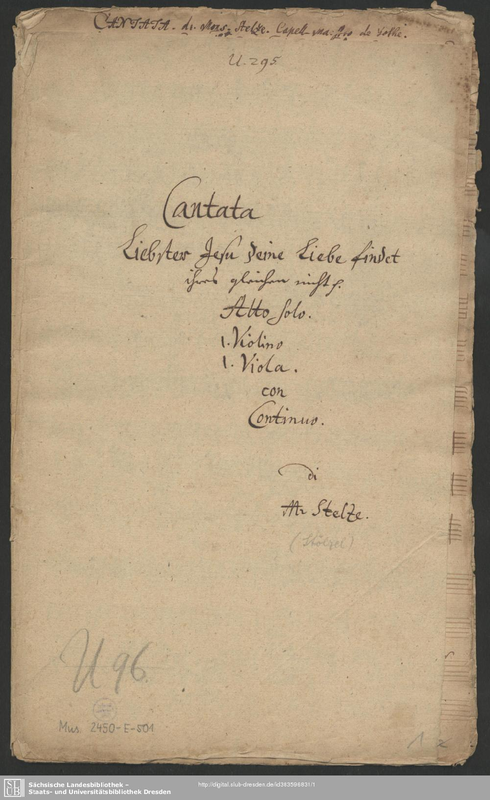 CANTATA. di Mons. Stelze. Capell
U. 295.
Cantata
Liebster Jesu deine Liebe findet
ihres gleichen nicht
Alto Solo.
1. Violino
1. Viola.
con
Continuo.
di
Mr Stelze.
(Stölzel)
U 96
Mus. 2450-E-501
Sächsische Landesbibliothek –
Staats- und Universitätsbibliothek Dresden
http://digital.slub-dresden.de/id363596831/1